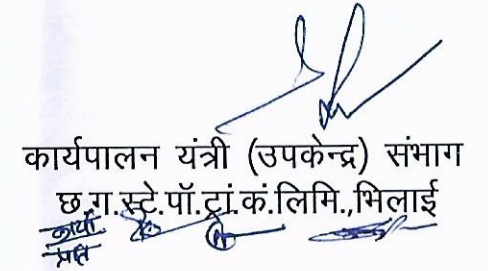 कार्यपालन यंत्री (उपकेन्द्र) संभाग
छ.ग.स्टे.पॉ.ट्रां.कं.लिमि.,भिलाई
कार्या
प्रति